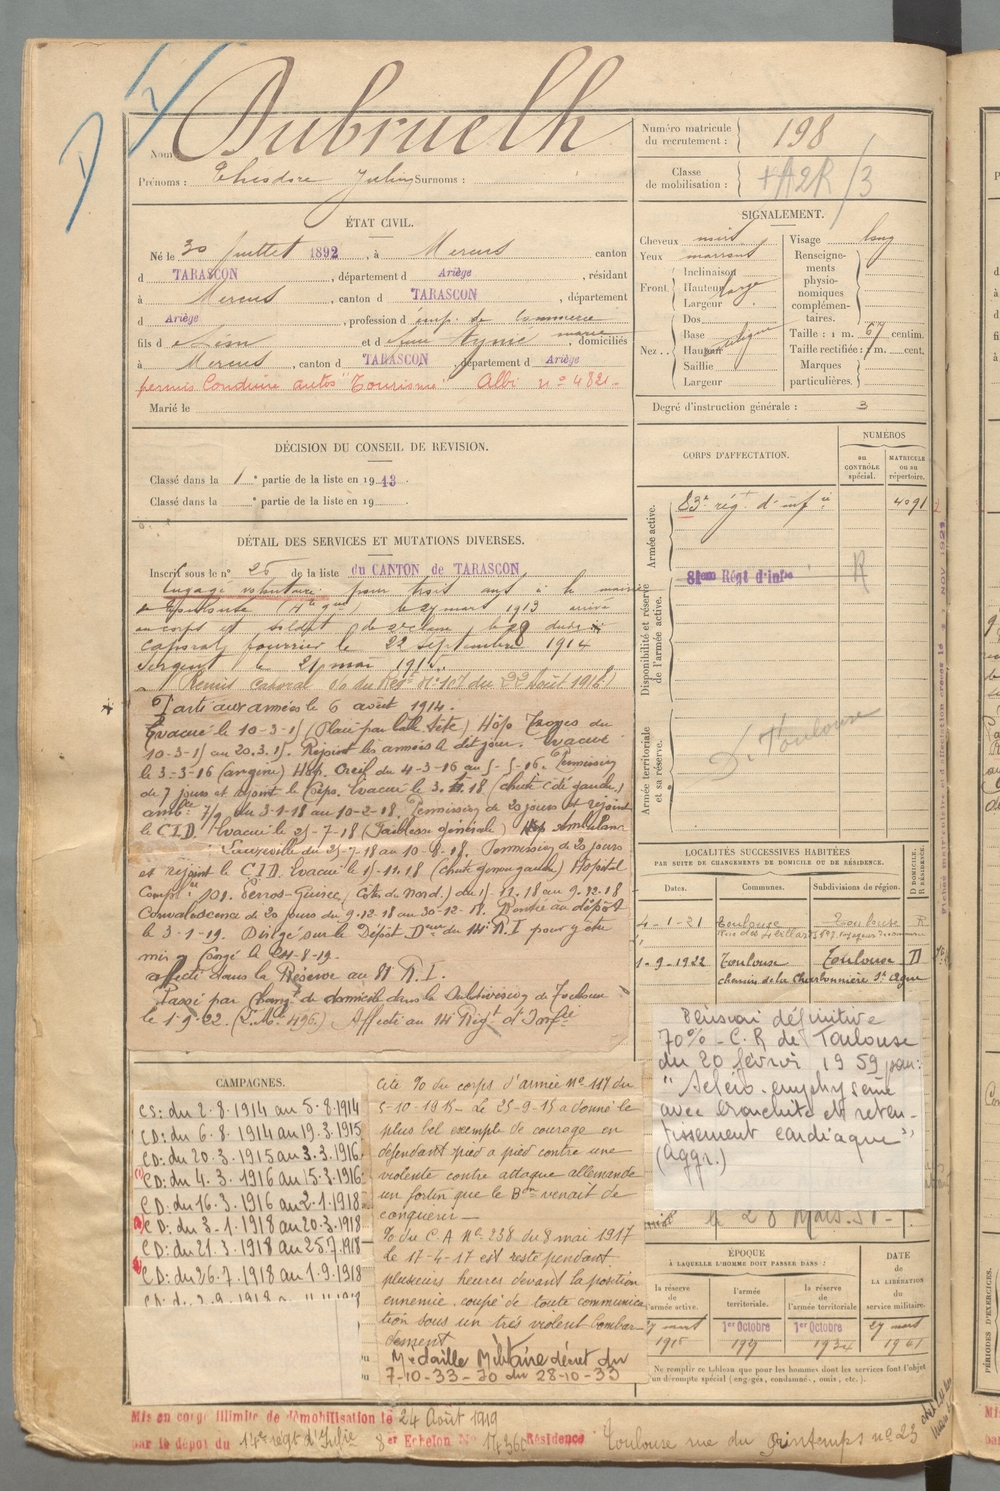 Nom : Dubruelh
Prénoms : Théodore Julien Surnoms :
Numéro matricule du recrutement : 198
Classe de mobilisation :
ÉTAT CIVIL.
Né le 30 Juillet 1892, à Mercus canton
d TARASCON, département d Ariège, résidant
à Mercus, canton d TARASCON, département
d Ariège, profession d emp. de Commerce
fils d et d domiciliés
à Mercus, canton d TARASCON, département d Ariège
permis Conduire autos "Tourisme" Albi nº 4821
Marié le
SIGNALEMENT.
Cheveux noirs
Yeux marrons
Front. Inclinaison
Hauteur large
Largeur
Nez.. Dos
Base
Hauteur
Saillie
Largeur
Visage long
Renseignements physionomiques complémentaires.
Taille : 1 m. 67 centim.
Taille rectifiée : 1 m. cent.
Marques particulières.
Degré d'instruction générale : 3
DÉCISION DU CONSEIL DE REVISION.
Classé dans la 1e partie de la liste en 1913
Classé dans la e partie de la liste en 19
DÉTAIL DES SERVICES ET MUTATIONS DIVERSES.
Inscrit sous le nº 26 de la liste du CANTON de TARASCON
Engagé volontaire pour trois ans à la mairie
de Toulouse le 27 mars 1913 arrivé
au corps et soldat de 2e classe le 29 dudit
Caporal fourrier le 22 septembre 1914
Sergent le 21 mai 191
Remis Caporal du 22 Août 1916)
Parti aux armées le 6 août 1914.
Evacué le 10-3-15 (Plaie par balle tête) Hôp. Troyes du
10-3-15 au 20.3.15. Rejoint les armées le dit jour. Evacué
le 3-3-16 (angine) Hôp. Creil du 4-3-16 au 5-5-16. Permission
de 7 jours et rejoint le Corps. Evacué le 3.1.18 (chute côté gauche)
ambce 7/9 du 3-1-18 au 10-2-18. Permission de 20 jours et rejoint
le C.I.D. Evacué le 25-7-18 (Faiblesse générale) Hôp ambulance
du 25-7-18 au 10-8-18. Permission de 20 jours
et rejoint le C.I.D. Evacué le 15-11-18 (chute genou gauche) Hôpital
Compre 101. Perros-Guirec (Côtes du Nord) du 15-11-18 au 9-12-18
Convalescence de 20 jours du 9-12-18 au 30-12-18. Rentré au dépôt
le 3-1-19. Dirigé sur le Dépôt Deur du 14e R.I pour y être
mis en Congé le 24-8-19.
affecté dans la Réserve au 81 R.I.
Passé par Changt de domicile dans la Subdivision de Toulouse
le 1-9-22. Affecté au 14e Régt d'Infie
CORPS D'AFFECTATION.
NUMÉROS
au CONTRÔLE spécial.
MATRICULE ou au répertoire.
Armée active.
83e régt d'infie 4091
Disponibilité et réserve de l'armée active.
81eme Régt d'Infie R
Armée territoriale et sa réserve.
D. Toulouse
LOCALITÉS SUCCESSIVES HABITÉES
PAR SUITE DE CHANGEMENTS DE DOMICILE OU DE RÉSIDENCE.
Dates. Communes. Subdivisions de région. D DOMICILE. R RÉSIDENCE.
4-1-21 Toulouse Toulouse R
1-9-1922 Toulouse Toulouse D
chemin de la Charbonnière St Agne
Pension définitive
70% - C.R de Toulouse
du 20 février 1959 pour:
"Scléro-emphysème
avec bronchite et reten-
tissement cardiaque"
(aggr.)
le 28 Mars.51-
CAMPAGNES.
CS: du 2.8.1914 au 5.8.1914
CD: du 6.8.1914 au 19.3.1915
CD: du 20.3.1915 au 3.3.1916
CD: du 4.3.1916 au 15.3.1916
CD: du 16.3.1916 au 2.1.1918
CD: du 3.1.1918 au 20.3.1918
CD: du 21.3.1918 au 25.7.1918
CD: du 26.7.1918 au 1.9.1918
Cité % du corps d'armée Nº 117 du
5-10-1915 - Le 25-9-15 a donné le
plus bel exemple de courage en
défendant pied à pied contre une
violente contre attaque allemande
un fortin que le Bon venait de
conquérir -
% du C.A Nº 238 du 8 mai 1917
le 17-4-17 est resté pendant
plusieurs heures devant la position
ennemie coupé de toute communica
tion sous un très violent bombar-
dement
Médaille Militaire décret du
7-10-33 - JO du 28-10-33
ÉPOQUE
A LAQUELLE L'HOMME DOIT PASSER DANS :
la réserve de l'armée active.
l'armée territoriale.
la réserve de l'armée territoriale
DATE DE LA LIBÉRATION du service militaire.
27 mars 1er Octobre 1er Octobre 27 mars
1916
Ne remplir ce tableau que pour les hommes dont les services font l'objet
d'un décompte spécial (engagés, condamné, omis, etc.).
Mis en congé illimité de démobilisation le 24 Août 1919
par le dépôt du 14e régt d'Infie 8er Echelon Nº 14360 Résidence Toulouse rue du Printemps nº 23
PÉRIODES D'EXERCICES.